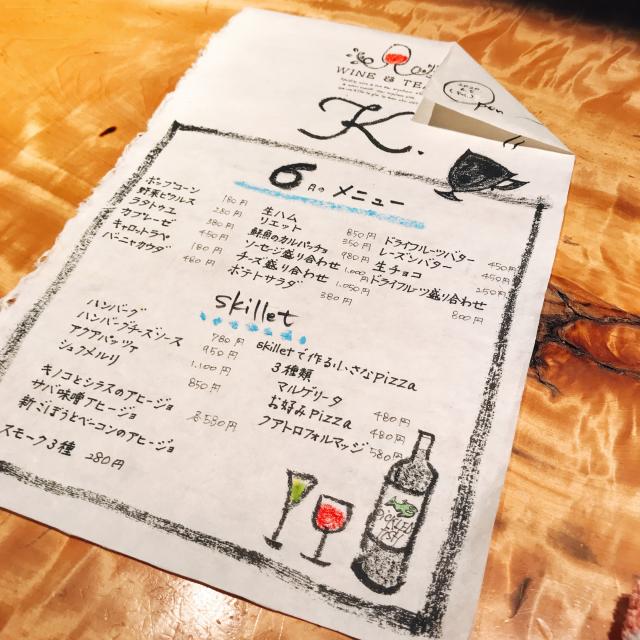 WINE & TE
K.
Pen
6月のメニュー
ポップコーン 180円
野菜ピクルス 280円
ラタトゥユ 380円
カプレーゼ 450円
キャロットラペ 180円
バーニャカウダ 480円
生ハム 850円
リエット 350円
鮮魚のカルパッチョ 980円
ソーセージ盛り合わせ 1,000円
チーズ盛り合わせ 1,050円
ポテトサラダ 380円
ドライフルーツバター 450円
レーズンバター 450円
生チョコ 250円
ドライフルーツ盛り合わせ 800円
skillet
ハンバーグ 780円
ハンバーグチーズソース 950円
アクアパッツァ 1,100円
シュクメルリ 850円
キノコとシラスのアヒージョ
サバ味噌アヒージョ
新ごぼうとベーコンのアヒージョ
各550円
スモーク3種 280円
skilletで作る小さなpizza
3種類
マルゲリータ 480円
お好みpizza 480円
クアトロフォルマッジ 580円